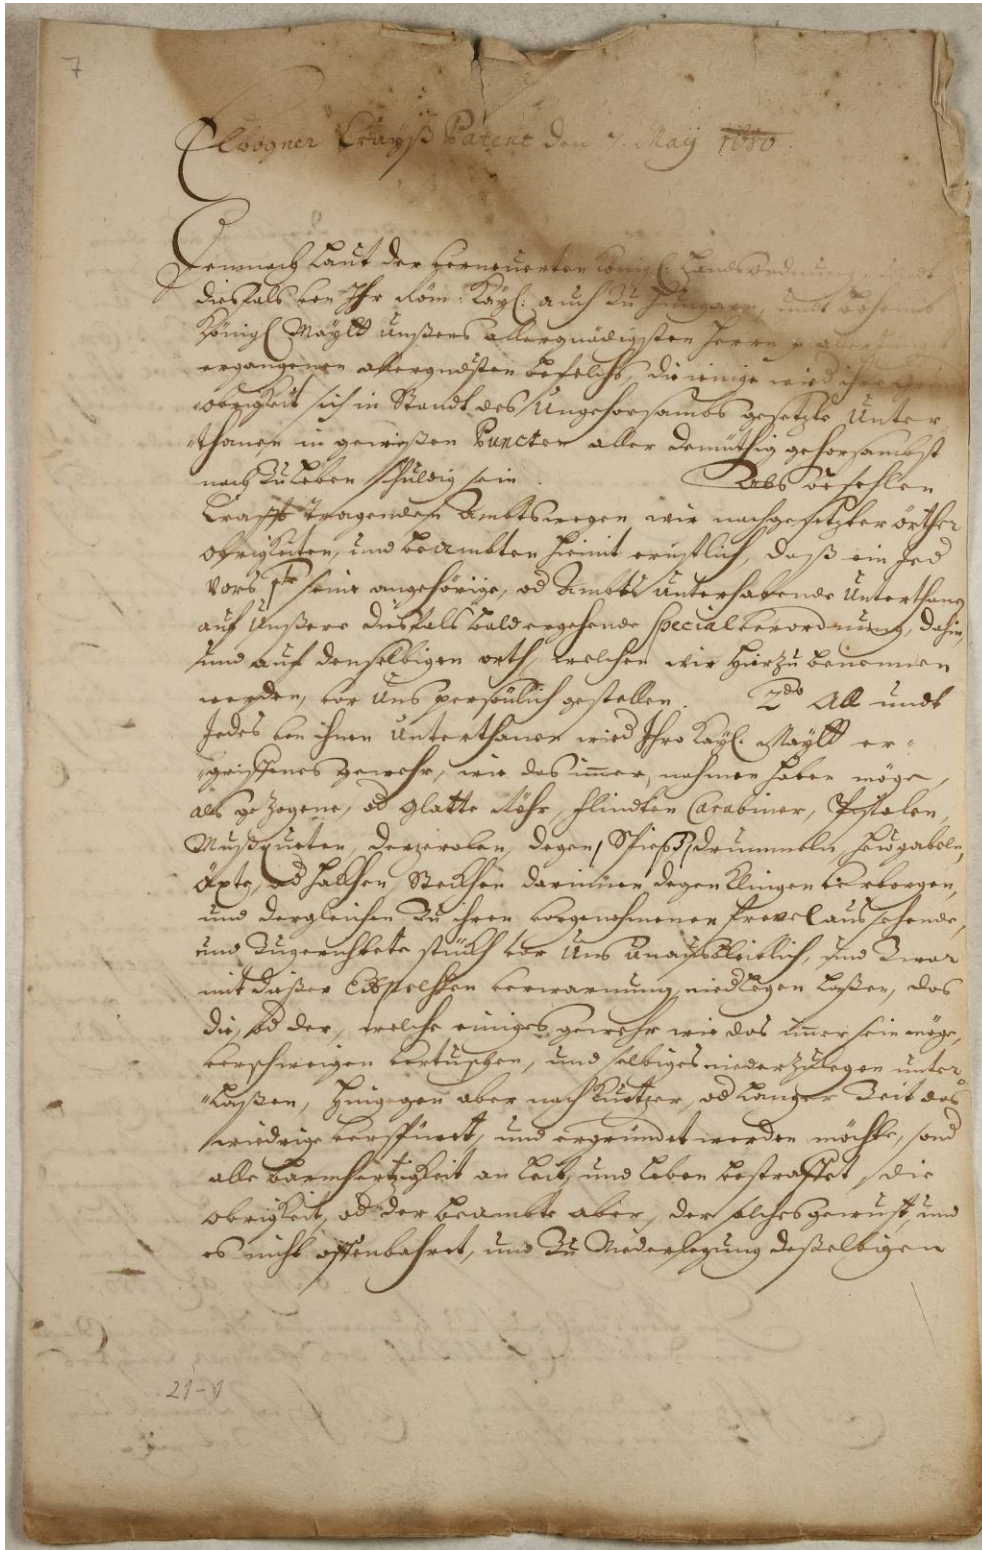 7
Elbogner Crayß Patent den 7. May 1680.
Demnach Laut der Verneuerten König. Landsordnung, undt
diesfals von Ihr Röm: Kayl: auch Zu Hungarn, undt Böheimb
Königl Mayltt Unßers allergnädigsten Herrn
ergangenen allergndsten befelchs, die ienige wied ihre
obrigkeit sich in Standt des Ungehorsambs gesetzte Unter,,
,,thanen in gewißen Puncten aller demüthig gehorsambst
nach Zu Leben schuldig sein. Alß befehlen
Crafft tragenden Ambtswegen wir nachgesetzter örther
Obrigkeiten, und beambten hiemit ernstlich, daß ein Jed
vors 1te seine angehörige, od Ambts Unterhabende Unterthanen
auf Unßere diesfals bald ergehende Specialverordnung, dahin,
und auf denselbigen orth, welchen wir hierzu benennen
werden, vor Uns persönlich gestellen. 2do All undt
Jedes von ihnen Unterthanen wied Ihro Kayl. Mayltt er,,
,,griffenes gewehr, wie das immer nahmen haben möge,
als gezogene, od glatte Röhr, flindten Carabiner, Pistolen,
Mußqueten, Terzerolen, Degen, Spieß, drummeln, heugabeln,
Äxte, od hakhen, Stekhen darinnen degen Klingen verborgen,
und dergleichen Zu ihren vorgenohmenen frevel aussehende,
und Zugerichtete stükh vor Uns unausbleiblich, und Zwar
mit dießer verwarnung niedlegen Laßen, das
die, od der, welche einiges gewehr wie das immer sein möge,
verschweigen vertuschen, und selbiges niederzulegen unter,,
,,Laßen, hingegen aber nach Kurtzer, od Langer Zeit das
wiedrige verspürt, und ergründet werden möchte, sond
alle barmhertzigkeit an Leib, und Leben bestraffet, die
obrigkeit, od der beambte aber, der solches gewust, und
es nicht offenbahret, und Zu Niederlegung deßelbigen
21-1